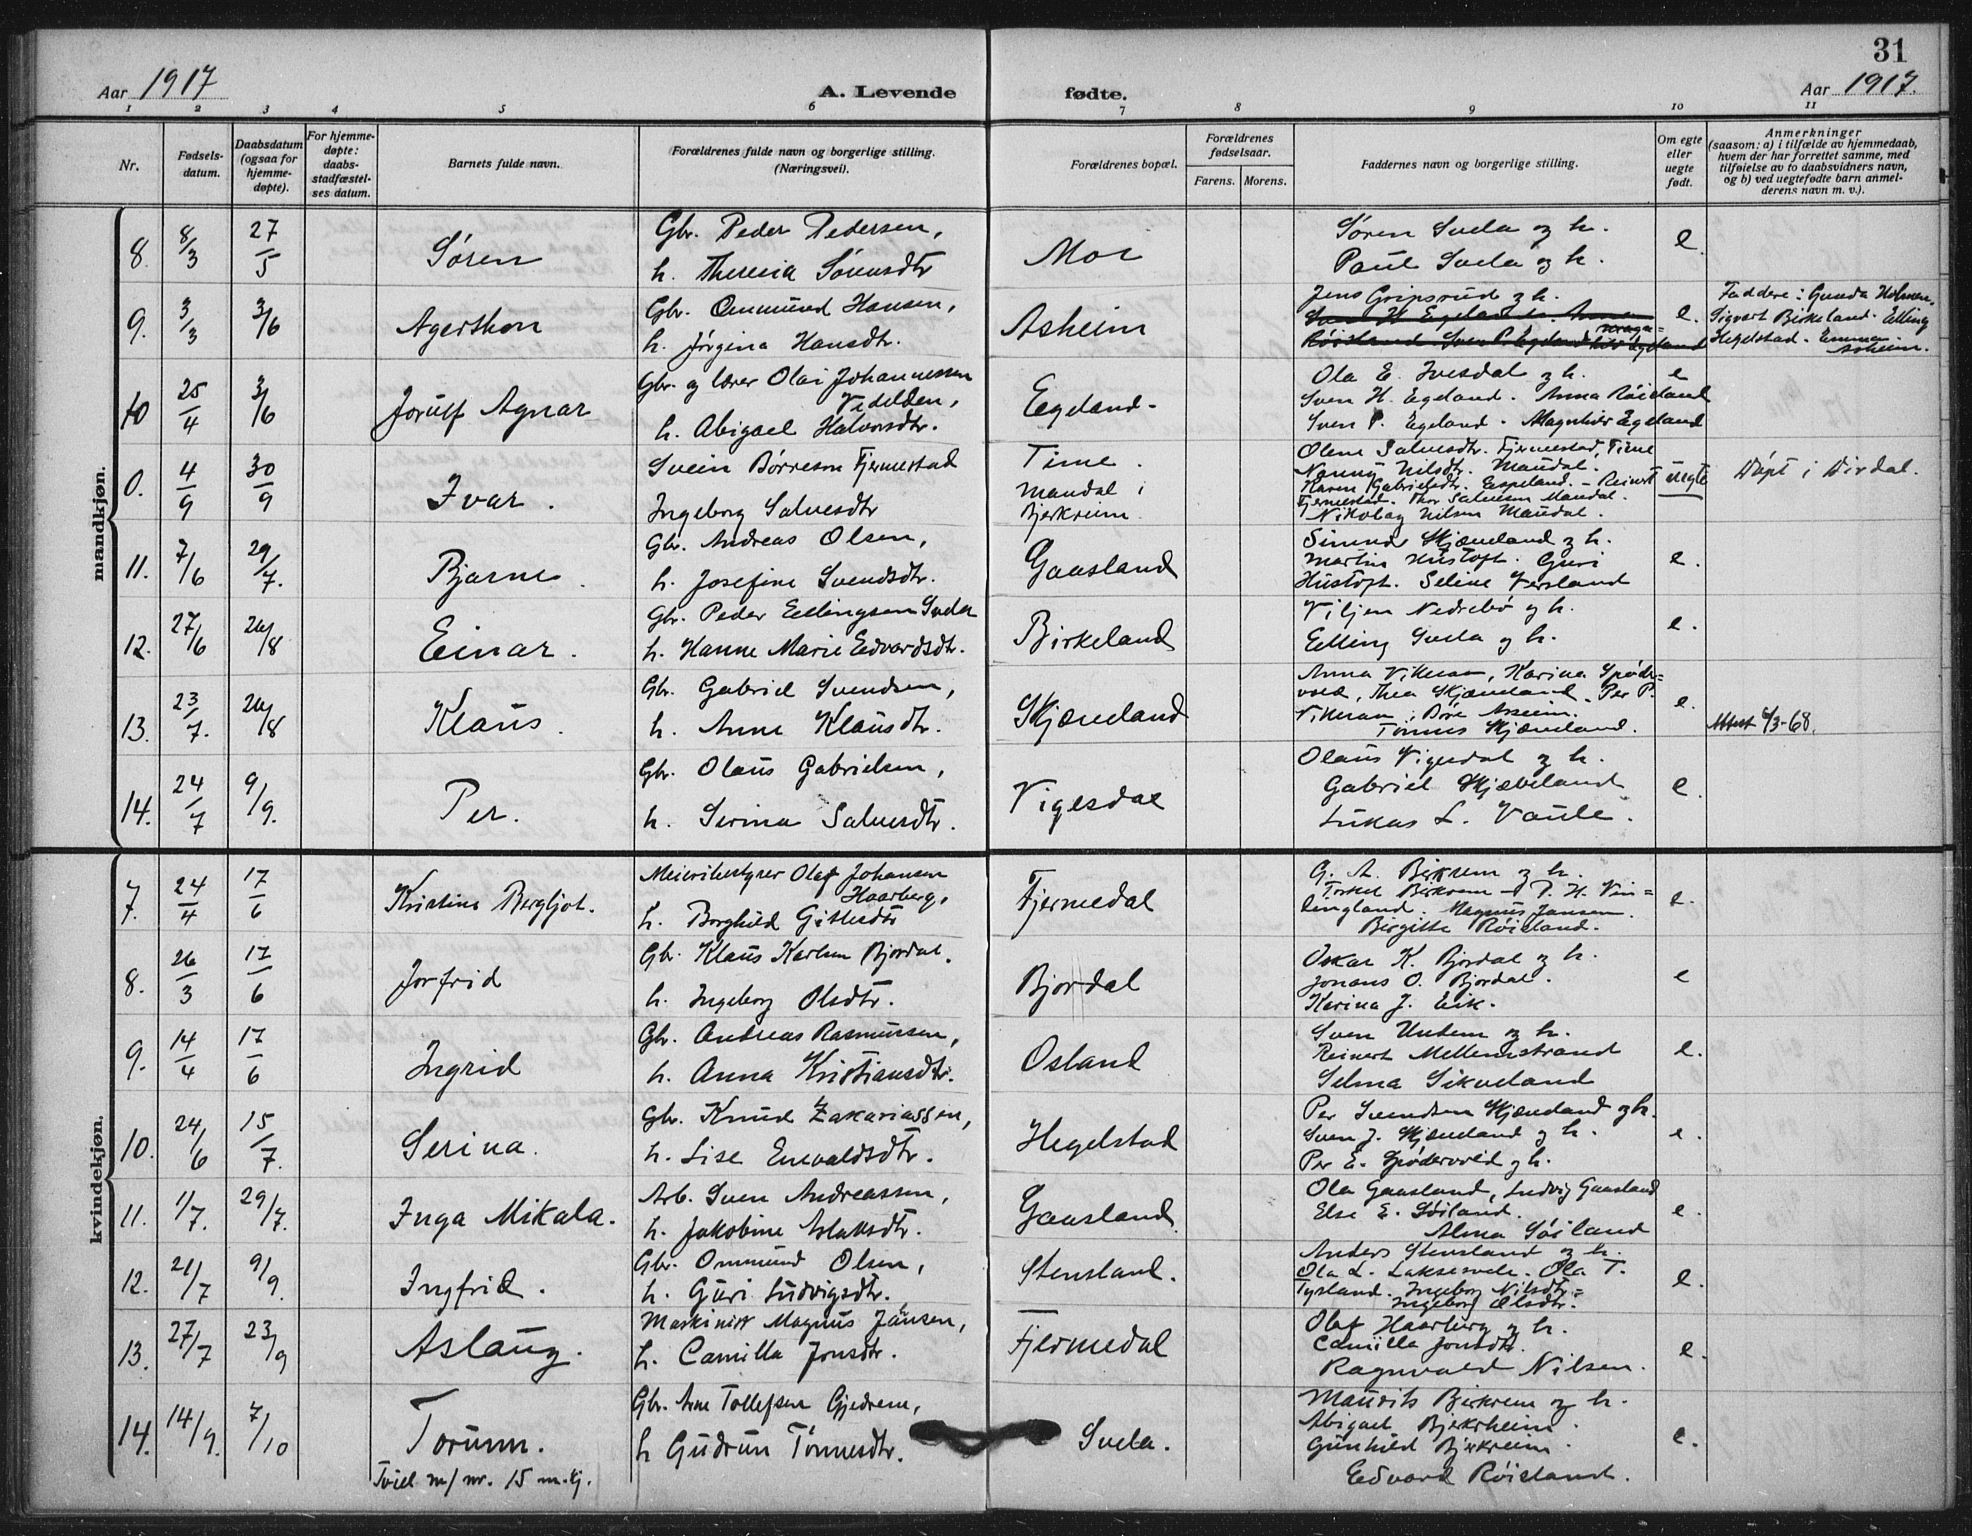 31
Aar 1917
A. Levende
fødte.
Aar 1917.
1 2 3 4 5 6 7 8 9 10 11
Nr.
Fødsels-
datum.
Daabsdatum
(ogsaa for
hjemme-
døpte).
For hjemme-
døpte:
daabs-
stadfæstel-
ses datum.
Barnets fulde navn.
Forældrenes fulde navn og borgerlige stilling.
(Næringsvei).
Forældrenes bopæl.
Forældrenes
fødselsaar.
Farens. Morens.
Faddernes navn og borgerlige stilling.
Om egte
eller
uegte
født.
Anmerkninger
(saasom: a) i tilfælde av hjemmedaab,
hvem der har forrettet samme, med
tilføielse av to daabsvidners navn,
og b) ved uegtefødte barn anmel-
derens navn m. v.).
mandkjøn.
8. 8/3 27/5 Søren
Gbr. Peder Pedersen,
h. Theresia Sørensdtr
Moi
Søren Svela og h.
Paul Svela og h.
e.
9. 3/3 3/6 Agerthon
Gbr. Ommund Hansen,
h. Jørgina Hansdtr.
Asheim
Jens Gripsrud og h.
e.
Faddere: Gunda Holmen.
Sigvart Birkeland. Elling
Hegelstad. Emma
Asheim.
10 25/4 3/6 Jorulf Agnar
Gbr. og lærer Olai Johannessen
Vedelden,
h. Abigael Halvorsdtr.
Egeland.
Ola E. Ivesdal og h.
Sven H. Egeland. Anna Røisland
Sven P. Egeland. Magnhor Egeland
e
0. 4/9 30/9 Ivar.
Svein Børreson Fjermestad
Ingeborg Salvesdtr
Time.
Maudal i
Bjerkreim
Olene Salvesdtr. Fjermestad, Time
Nanny Nilsdtr. Maudal.
Karen Gabrielsdtr. Espeland. - Reinert
Fjermestad. Thor Salvesen Maudal.
Nikolay Nilsen Maudal.
uegte
Døpt i Dirdal.
11. 7/6 29/7. Bjarne.
Gbr. Andreas Olsen,
h. Josefine Svendsdtr.
Gaasland
Skjæveland og h.
Martin Hustoft. Guri
Hustoft. Seline Versland
e.
12. 27/6 26/8 Einar.
Gbr. Peder Ellingsen Svela
h. Hanne Marie Edvardsdtr.
Birkeland
Viljen Nedrebø og h.
Elling Svela og h.
e.
13. 23/7. 26/8 Klaus.
Gbr. Gabriel Svendsen,
h. Anne Klausdtr.
Skjæveland
Anna Vikesaa, Karina Spøder-
vold, Thea Skjæveland. Per P.
Vikesaa, Børe Asheim.
Tønnes Skjæveland.
e.
Attest 6/3-68.
14. 24/7 9/9. Per.
Gbr. Olaus Gabrielsen,
h. Serina Salvesdtr.
Vigesdal
Olaus Vigesdal og h.
Gabriel Skjæveland
Lukas L. Vaule.
e.
kvindekjøn.
7. 24/4 17/6 Kristine Bergljot.
Meieribestyrer Olaf Johansen
Haarberg,
h. Borghild Gittlesdtr
Fjermedal
G. A. Birkrem og h.
Torkel Birkrem - P. H. Vin=
dingland. Magnus Jansen.
Birgitte Røisland.
e.
8. 26/3 17/6 Jorfrid
Gbr. Klaus Karlsen Bjordal.
h. Ingeborg Olsdtr.
Bjordal
Oskar K. Bjordal og h.
Jonans O. Bjordal.
Karina J. Eik.
e
9. 14/4 17/6 Ingrid
Gbr. Andreas Rasmussen,
h. Anna Kristiansdtr.
Osland
Sven Undem og h.
Reinert Mellemstrand
Selma Sikveland
e.
10. 24/6 15/7. Serina.
Gbr. Knud Zakariassen,
h. Lise Enevaldsdtr.
Hegelstad
Per Svendsen Skjæveland og h.
Sven J. Skjæveland og h.
Per E. Spødervold og h.
e.
11. 1/7. 29/7. Inga Mikala.
Arb. Sven Andreassen,
h. Jakobine Aslaksdtr.
Gaasland
Ola Gaasland, Ludvig Gaasland
Else E. Søiland.
Alma Søiland
e.
12. 21/7 9/9. Ingfrid.
Gbr. Ommund Olsen,
h. Guri Ludvigsdtr.
Stensland.
Anders Stensland og h.
Ola L. Laksesvela. Ola T.
Tysland. Ingeborg Nilsdtr.=
Ingeborg Olsdtr.
e.
13. 27/7 23/9 Aslaug.
Maskinist Magnus Jansen,
h. Camilla Jonsdtr.
Fjermedal
Olaf Haarberg og h.
Camilla Jonsdtr.
Ragnvald Nilsen.
e.
14. 14/9. 7/10 Torunn.
Tvill. m/ nr. 15 m.kj.
Gbr. Arne Tollefsen Gjedrem,
h Gudrun Tønnesdtr.
Svela.
Maurits Birkrem og h.
Abigael Bjerkrheim
Gunhild Bjerkreim.
Edvard Røisland.
e.